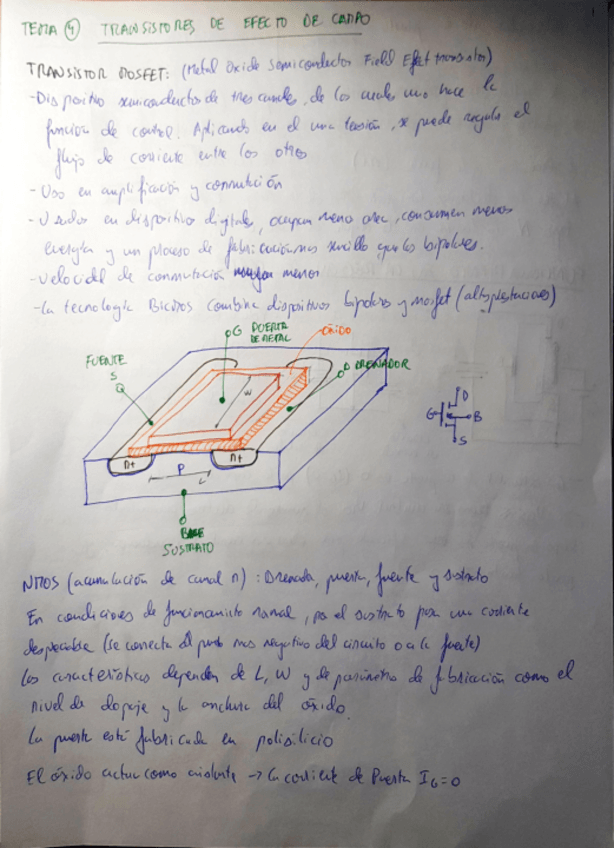 TEMA 4 TRANSISTORES DE EFECTO DE CAMPO
TRANSISTOR MOSFET: (Metal Oxide Semiconductor Field Effect transistor)
- Dispositivo semiconductor de tres canales, de los cuales uno hace la
función de control. Aplicando en el una tensión, se puede regular el
flujo de corriente entre los otros
- Uso en amplificación y conmutación
- Usados en dispositivos digitales, ocupan menos area, consumen menos
energía y un proceso de fabricación mas sencillo que los bipolares.
- Velocidad de conmutación menor
- La tecnología Bicmos combina dispositivos bipolares y mosfet (altas prestaciones)
G PUERTA DE METAL
ÓXIDO
FUENTE
S
D DRENADOR
W
n+
P
L
n+
BASE
SUSTRATO
D
G
B
S
NMOS (acumulación de canal n): Drenador, puerta, fuente y sustrato
En condiciones de funcionamiento normal, por el sustrato pasa una corriente
despreciable (se conecta al punto mas negativo del circuito o a la fuente)
Las características dependen de L, W y de parámetros de fabricación como el
nivel de dopaje y la anchura del óxido.
La puerta está fabricada en polisilicio
El óxido actua como aislante → la corriente de Puerta IG=0